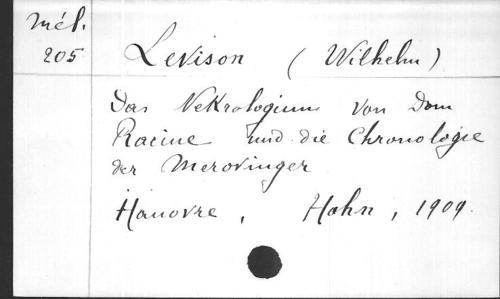 Mél.
205
Levison (Wilhelm)
Das Nekrologium von Dom
Racine und die Chronologie
der Merovinger
Hanovre, Hahn, 1909.